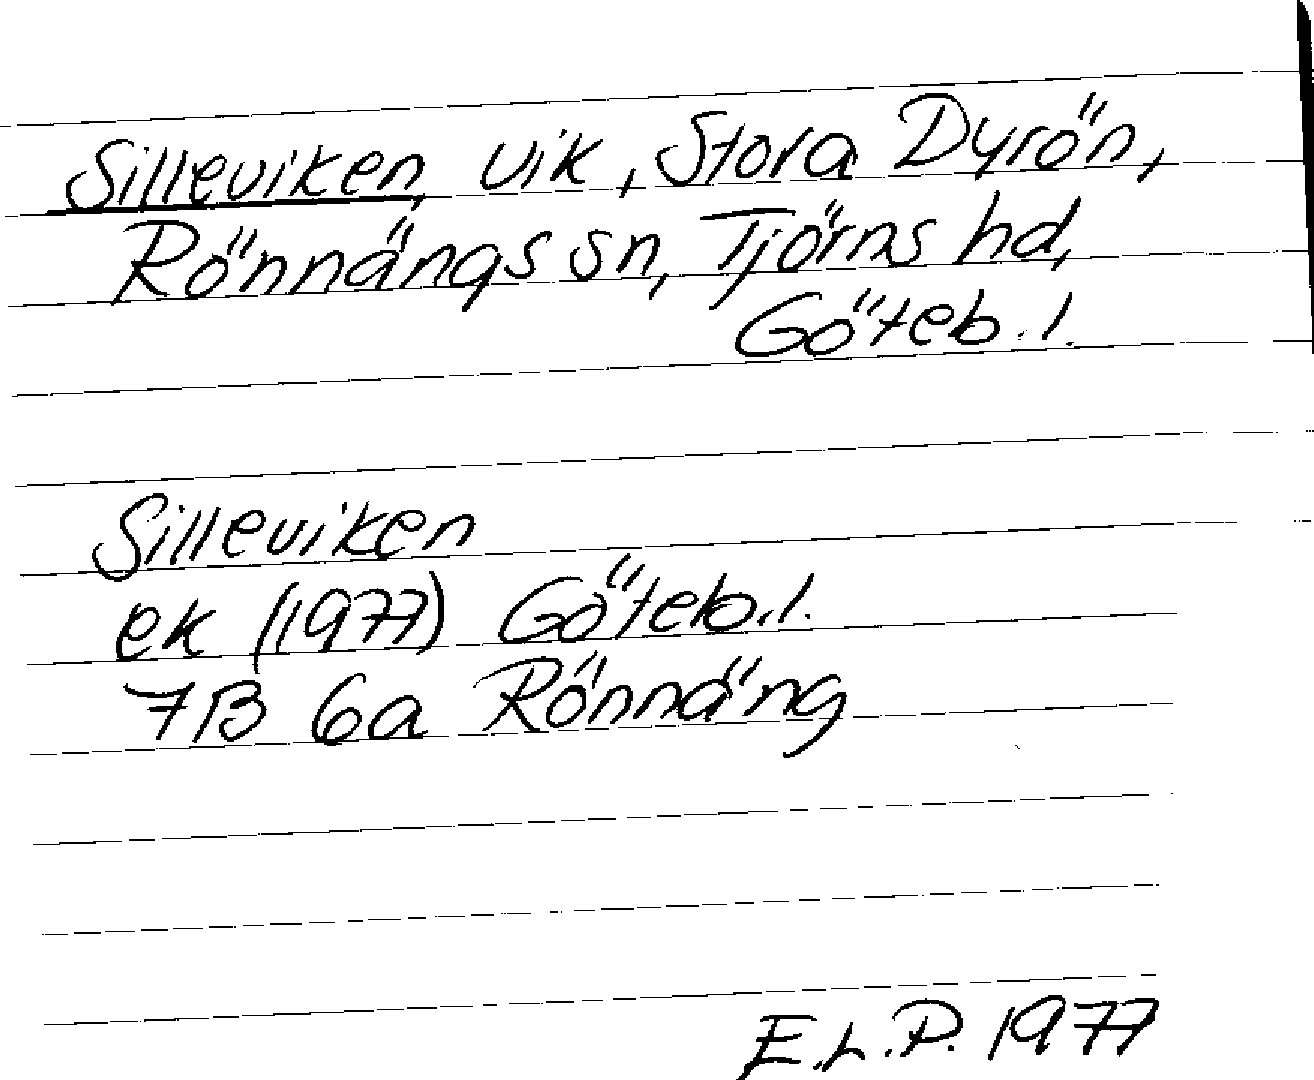 Silleviken, vik, Stora Dyrön,
Rönnängs sn, Tjörns hd,
Göteb.l.
Silleviken
ek (1977) Göteb.l.
7B 6a Rönnäng
E.L.P. 1977